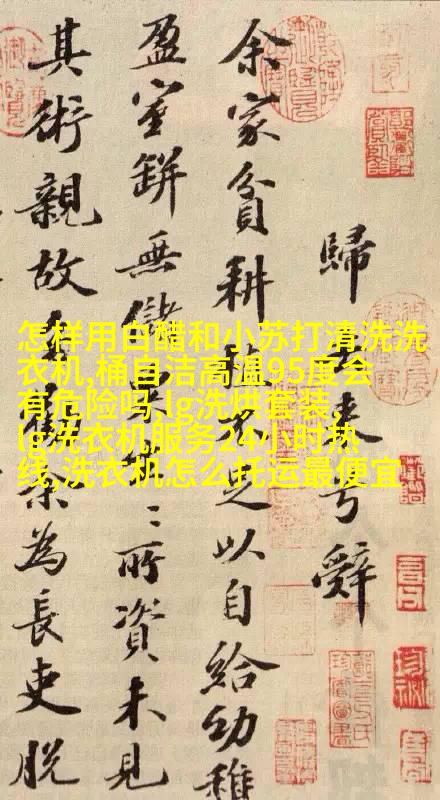 歸來兮辭
余家貧耕不足以自給幼稚
盈室缾無儲所資未見
其術親故為長吏脫
怎样用白醋和小苏打清洗洗
衣机,桶自洁高温95度会
有危险吗,lg洗烘套装,
lg洗衣机服务24小时热
线,洗衣机怎么托运最便宜